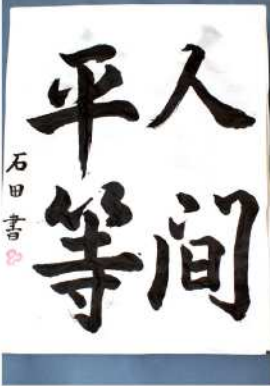 人间
平等
石田書